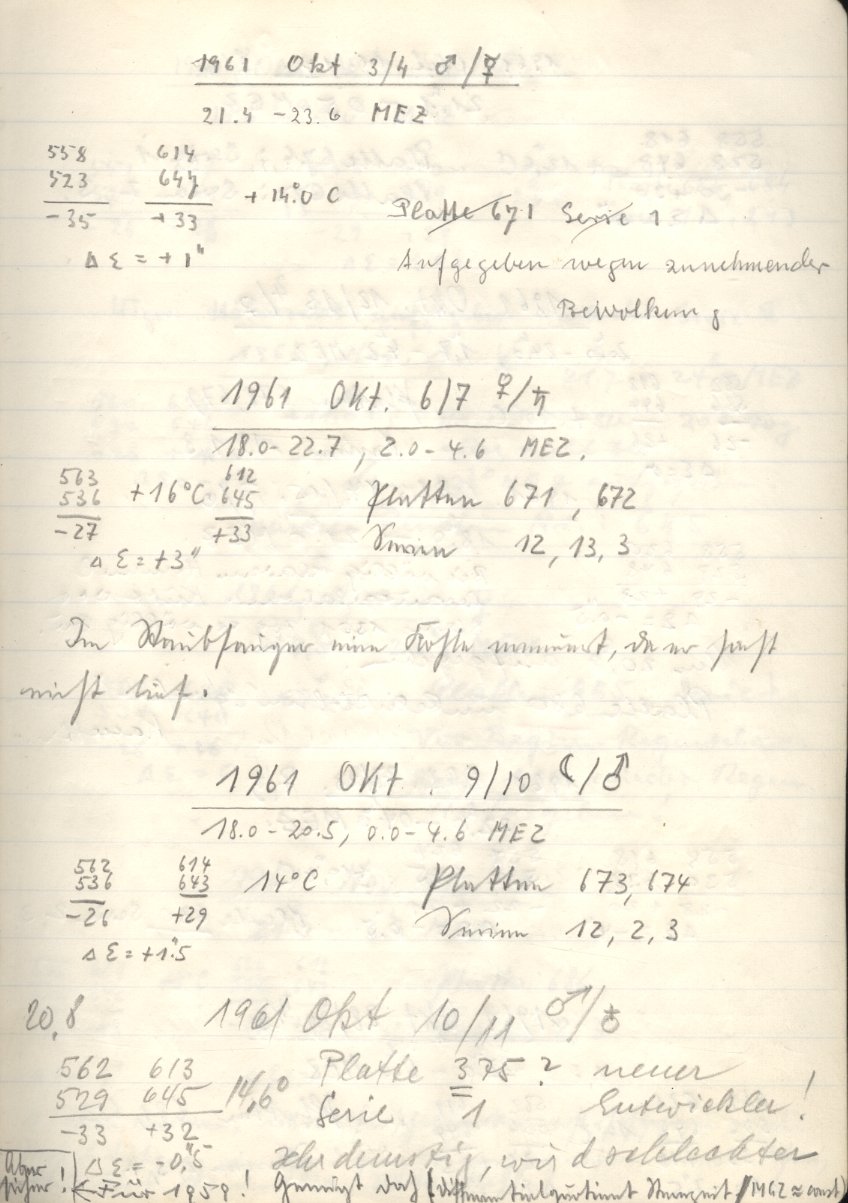 1961 Okt 3/4 ♂/☿
21.4 - 23.6 MEZ
558 614
523 647 + 14°.0 C
-35 +33
Platte 671 Serie 1
Δ ε = + 1"
Aufgegeben wegen zunehmender
Bewölkung
1961 Okt. 6/7 ♀/♄
18.0 - 22.7, 2.0 - 4.6 MEZ.
563 612
536 +16°C 645 Platten 671, 672
-27 +33
Serien 12, 13, 3
Δ ε = +3"
Im Staubfänger eine Kohle erneuert, da er sonst
nicht lief.
1961 Okt. 9/10 ☾/♂
18.0 - 20.5, 0.0 - 4.6 MEZ
562 614
536 643 14°C Platten 673, 674
-26 +29
Serien 12, 2, 3
Δ ε = +1".5
20,8 1961 Okt 10/11 ♂/☿
562 613 Platte 375? neuer
529 645 14,6° Serie 1 Entwickler!
-33 +32
Δ ε = -0",5 sehr dunstig, wird schlechter
Aber ! ← Für 1959!